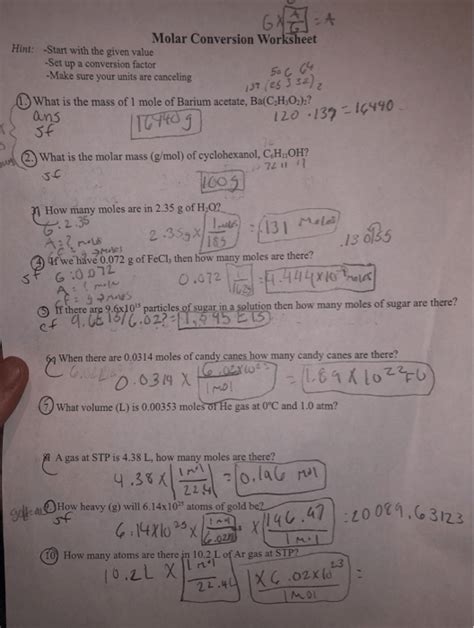 G X A/G = A
Molar Conversion Worksheet
Hint: -Start with the given value
-Set up a conversion factor
-Make sure your units are canceling
1. What is the mass of 1 mole of Barium acetate, Ba(C₂H₃O₂)₂?
ans
sf
16440 g
120 · 139 = 16440
2. What is the molar mass (g/mol) of cyclohexanol, C₆H₁₁OH?
sf
72 11 17
100 g
3) How many moles are in 2.35 g of H₂O?
G: 2.35
A = ? mols
2.35g X
= .131 Moles
4) If we have 0.072 g of FeCl₃ then how many moles are there?
sf
G: 0.072
A = ? mols
0.072
5) If there are 9.6x10¹⁵ particles of sugar in a solution then how many moles of sugar are there?
6) When there are 0.0314 moles of candy canes how many candy canes are there?
0.0314 X 6.02x10²³ / 1 mol = 1.89 X 10²²
7. What volume (L) is 0.00353 moles of He gas at 0°C and 1.0 atm?
8. A gas at STP is 4.38 L, how many moles are there?
4.38 X 1 mol / 22.4 = 0.196 mol
9. How heavy (g) will 6.14x10²⁵ atoms of gold be?
sf
6.14X10²⁵ X 1 M X 196.97 / 1 mol = 20089.63123
10. How many atoms are there in 10.2 L of Ar gas at STP?
10.2L X 1 mol / 22.4L X 6.02x10²³ / 1 mol =